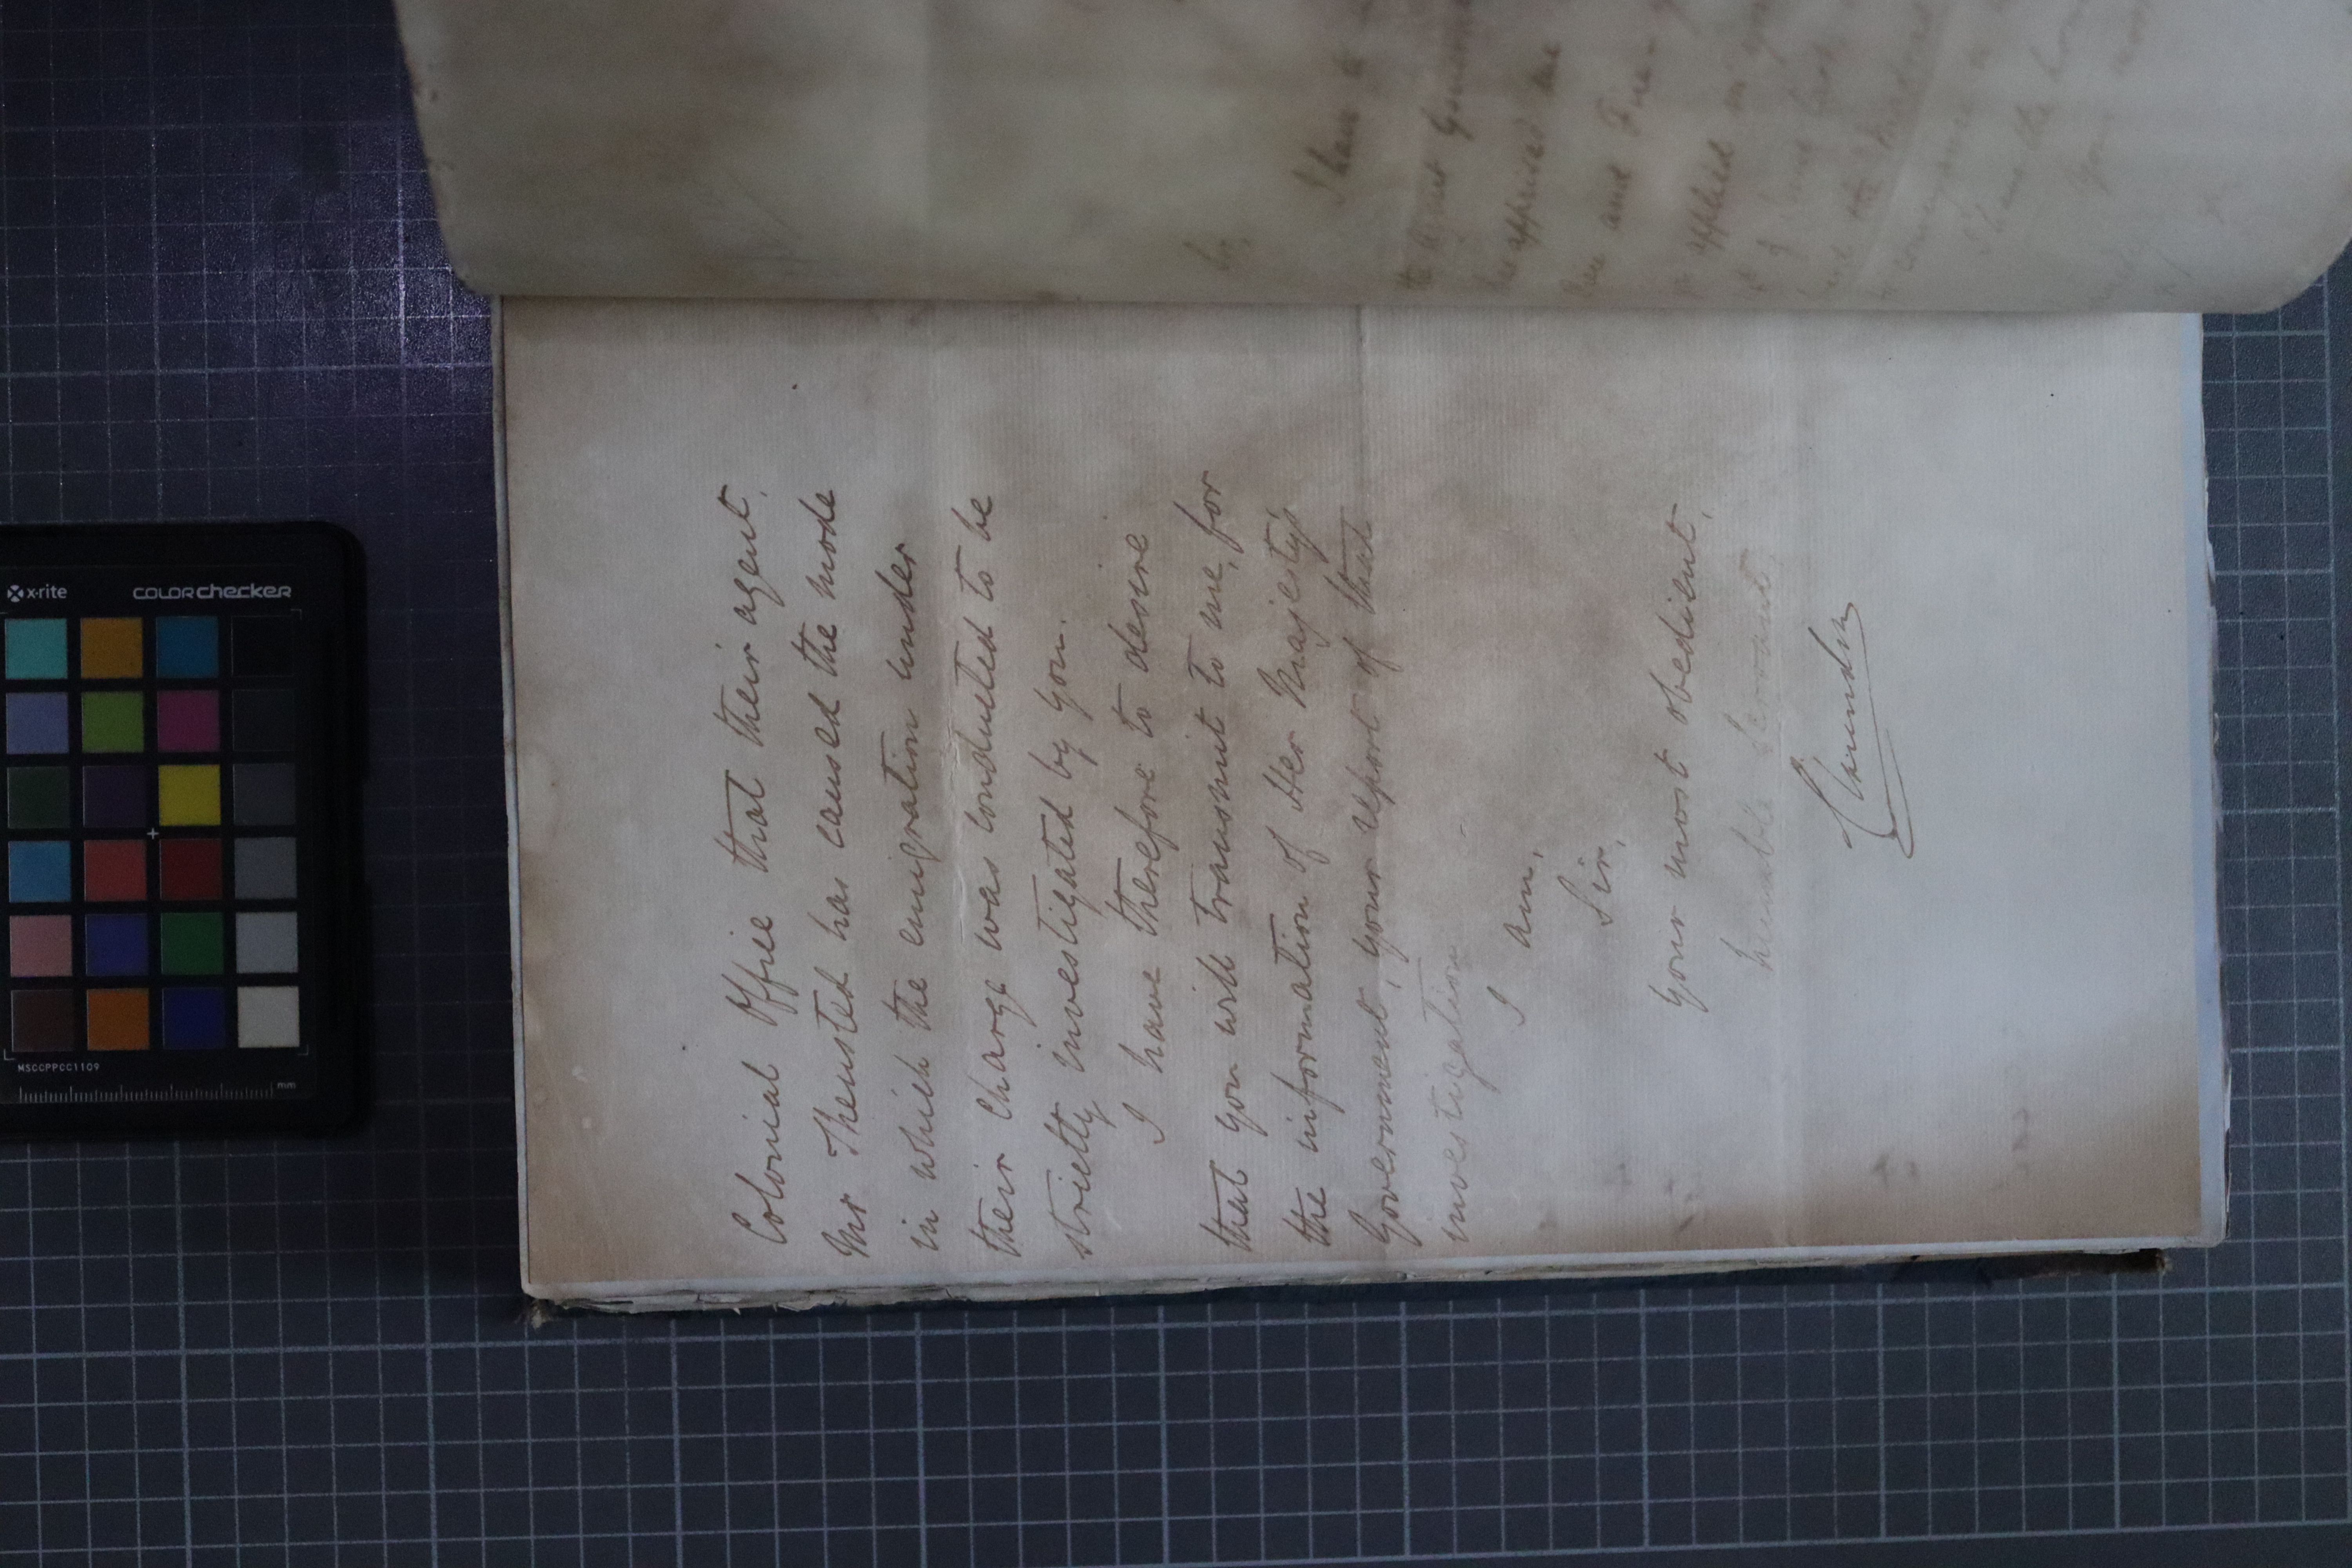 Colonial Office that their agent,
Mr Theusted has caused the mode
in which the emigration under
their charge was conducted to be
strictly investigated by you.
I have therefore to desire
that you will transmit to me, for
the information of Her Majesty's
Government, your report of that
investigation
I am,
Sir,
your most obedient,
humble Servant
Clarendon
I have
appeared
here and
applied
x-rite
COLORchecker
MSCCPPCC1109
mm